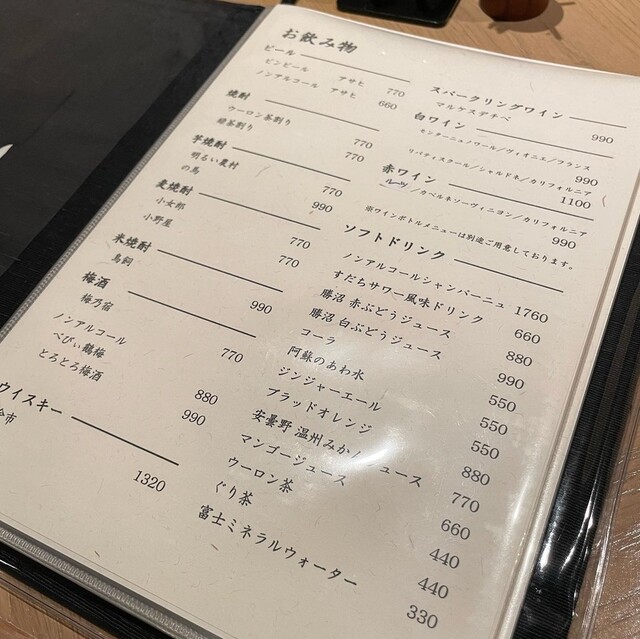 お飲み物
ビール
ビンビール アサヒ 770
ノンアルコール アサヒ 660
焼酎
ウーロン茶割り 770
緑茶割り 770
芋焼酎
明るい農村 770
の馬 990
麦焼酎
小女郎 770
小野屋 770
米焼酎
鳥飼 990
梅酒
梅乃宿 770
ノンアルコール
べびぃ鶴梅 880
とろとろ梅酒 990
ウイスキー
余市 1320
スパークリングワイン
マルケスデチベ 990
白ワイン
モンターニュノワール/ヴィオニエ/フランス 990
リバティスクール/シャルドネ/カリフォルニア 1100
赤ワイン
ルーツ/カベルネソーヴィニヨン/カリフォルニア 990
※ワインボトルメニューは別途ご用意しております。
ソフトドリンク
ノンアルコールシャンパーニュ 1760
すだちサワー風味ドリンク 660
勝沼 赤ぶどうジュース 880
勝沼 白ぶどうジュース 990
コーラ 550
阿蘇のあわ水 550
ジンジャーエール 550
ブラッドオレンジ 880
安曇野 温州みかんジュース 770
マンゴージュース 660
ウーロン茶 440
ぐり茶 440
富士ミネラルウォーター 330